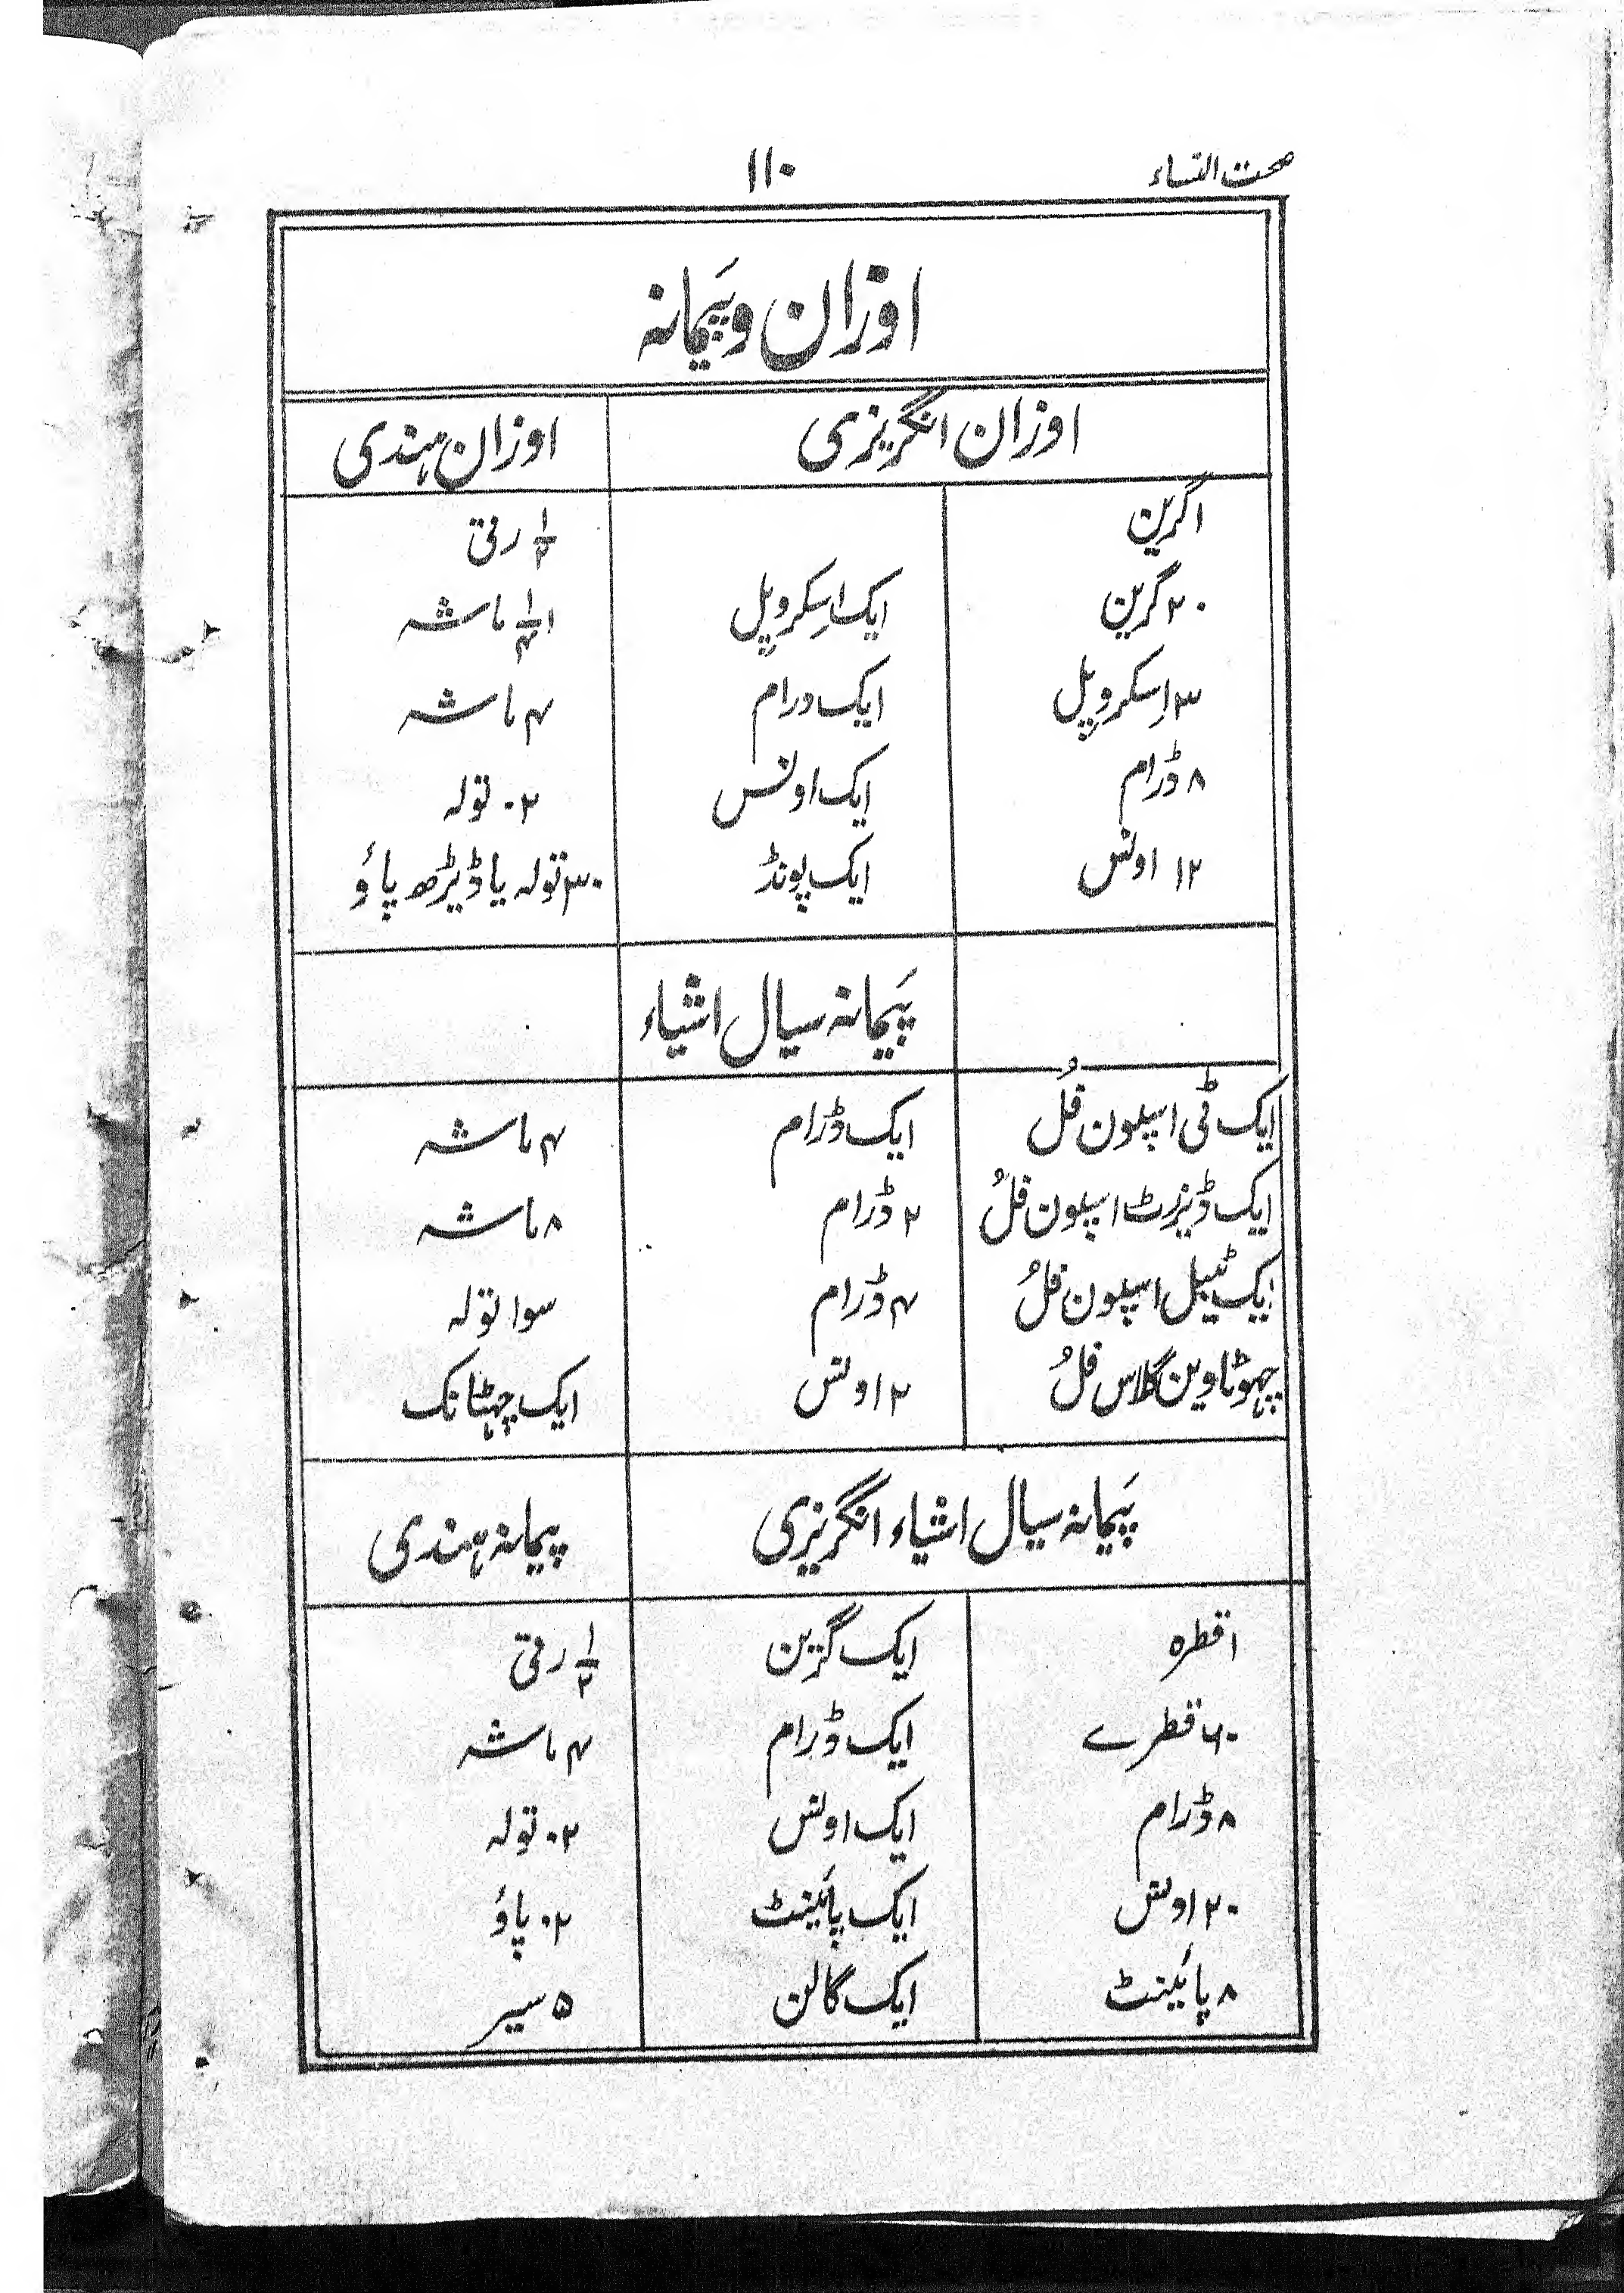 صحت النساء ۱۱۰
اوزان و پَیمانہ
اوزان انگریزی اوزان ہندی
۱گرین ۱/۲ رتی
۲۰گرین ایک اِسکروپل ۱ ۱/۴ ماشہ
۳ اِسکروپل ایک درام ۴ ماشہ
۸ ڈرام ایک اونس ۲۰ تولہ
۱۲ اونس ایک پونڈ ۳۰ تولہ یا ڈیڑھ پاؤ
پَیمانہ سیال اشیاء
ایک ٹی اسپون فُل ایک ڈرام ۴ ماشہ
ایک ڈیزرٹ اسپون فلُ ۲ ڈرام ۸ ماشہ
ایک ٹیبل اسپون فلُ ۴ ڈرام سوا تولہ
چہوٹا وین گلاس فلُ ۲ اونس ایک چہٹانک
پَیمانہ سیال اشیاء انگریزی پیمانہ ہندی
۱ قطرہ ایک گرین ۱/۲ رتی
۶۰ قطرے ایک ڈرام ۴ ماشہ
۸ ڈرام ایک اونس ۲۰ تولہ
۲۰ اونس ایک پائینٹ ۲۰ پاؤ
۸ پائینٹ ایک گالن ۵ سیر